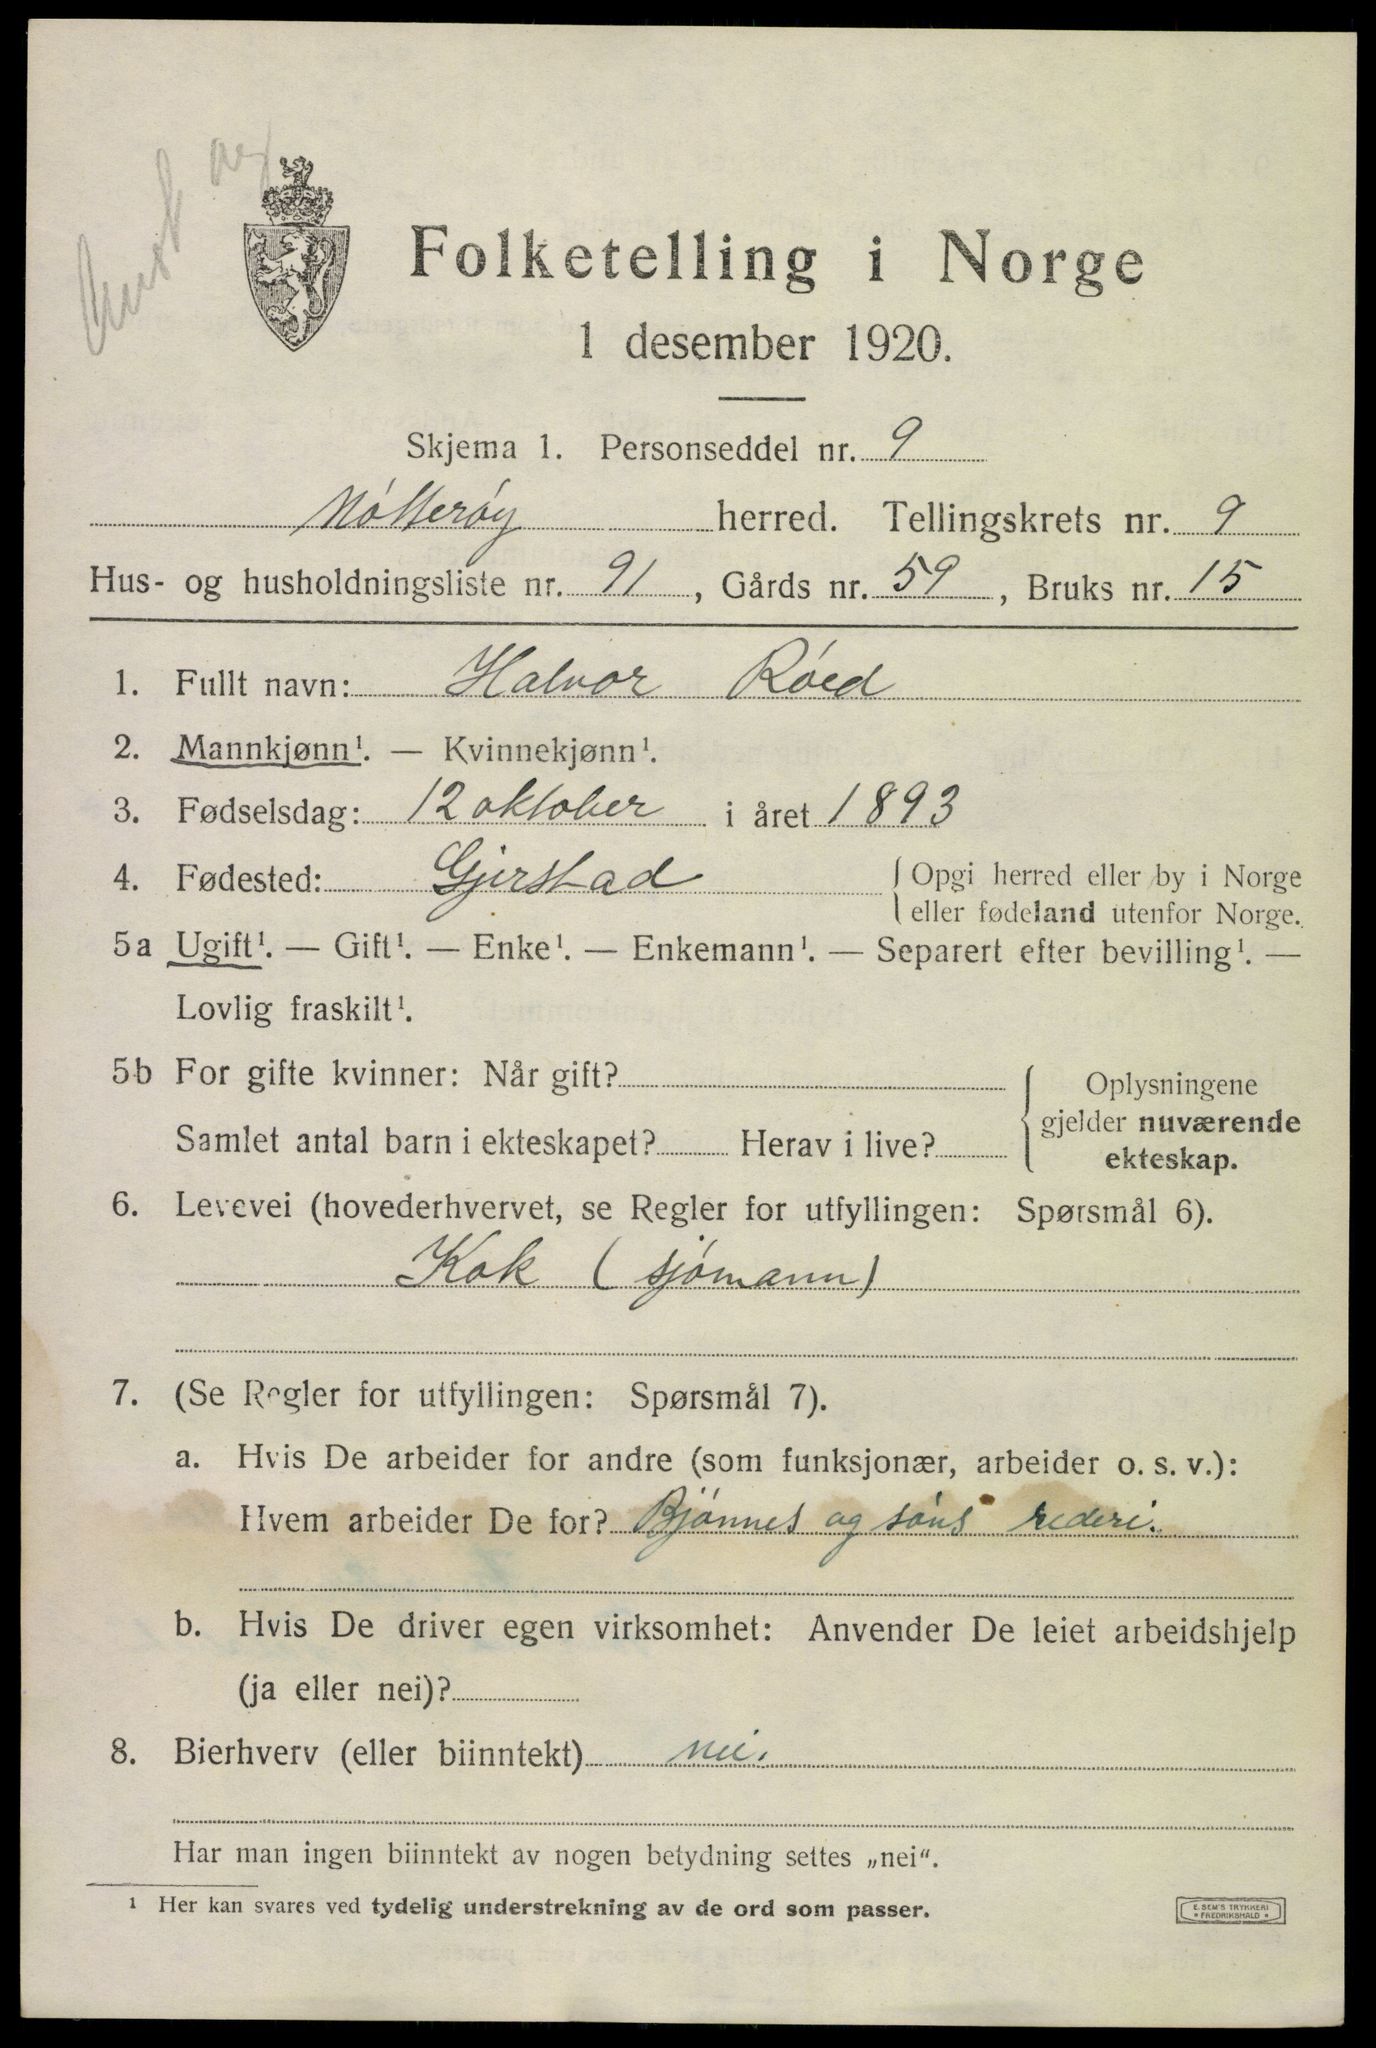 Aust ag
Folketelling i Norge
1 desember 1920.
Skjema 1. Personseddel nr. 9
Nótteróy herred. Tellingskrets nr. 9
Hus- og husholdningsliste nr. 91, Gårds nr. 59, Bruks nr. 15
1. Fullt navn: Halvor Róed
2. Mannkjønn¹. — Kvinnekjønn¹.
3. Fødselsdag: 12 oktober i året 1893
4. Fødested: Gjerstad { Opgi herred eller by i Norge
eller fødeland utenfor Norge.
5a Ugift¹. — Gift¹. — Enke¹. — Enkemann¹. — Separert efter bevilling¹. —
Lovlig fraskilt¹.
5b For gifte kvinner: Når gift?
Samlet antal barn i ekteskapet? Herav i live?
Oplysningene
gjelder nuværende
ekteskap.
6. Levevei (hovederhvervet, se Regler for utfyllingen: Spørsmål 6).
Kok (sjómann)
7. (Se Regler for utfyllingen: Spørsmål 7).
a. Hvis De arbeider for andre (som funksjonær, arbeider o. s. v.):
Hvem arbeider De for? Bjónnes og sóns rederi.
b. Hvis De driver egen virksomhet: Anvender De leiet arbeidshjelp
(ja eller nei)?
8. Bierhverv (eller biinntekt) nei.
Har man ingen biinntekt av nogen betydning settes „nei“.
¹ Her kan svares ved tydelig understrekning av de ord som passer.
E. SEM'S TRYKKERI
* FREDRIKSHALD *